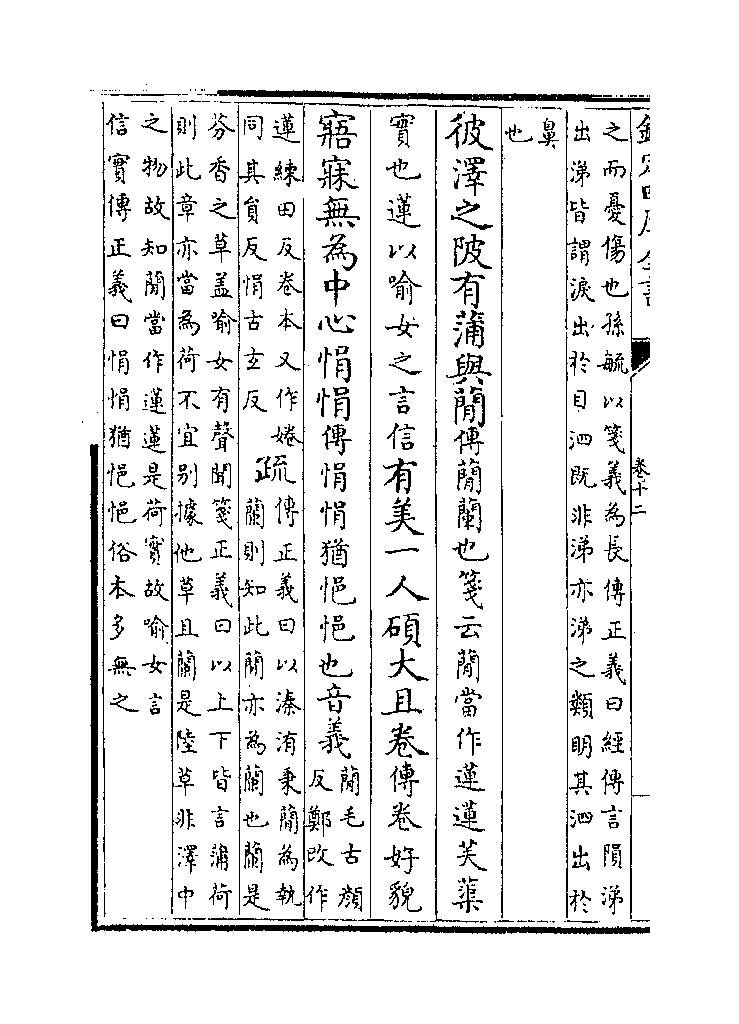 欽定四庫全書
卷十二
之而憂傷也孫毓以箋義為長傳正義曰經傳言隕涕
出涕皆謂淚出於目泗既非涕亦涕之類明其泗出於
鼻
也
彼澤之陂有蒲與蕑傳蕑蘭也箋云蕑當作蓮蓮芙蕖
實也蓮以喻女之言信有美一人碩大且卷傳卷好貌
寤寐無為中心悁悁傳悁悁猶悒悒也音義
蕑毛古顔
反鄭改作
蓮練田反卷本又作婘
同其貟反悁古玄反
疏
傳正義曰以溱洧秉蕑為執
蘭則知此蕑亦為蘭也蘭是
芬香之草盖喻女有聲聞箋正義曰以上下皆言蒲荷
則此章亦當為荷不宜别據他草且蘭是陸草非澤中
之物故知蕑當作蓮蓮是荷實故喻女言
信實傳正義曰悁悁猶悒悒俗本多無之